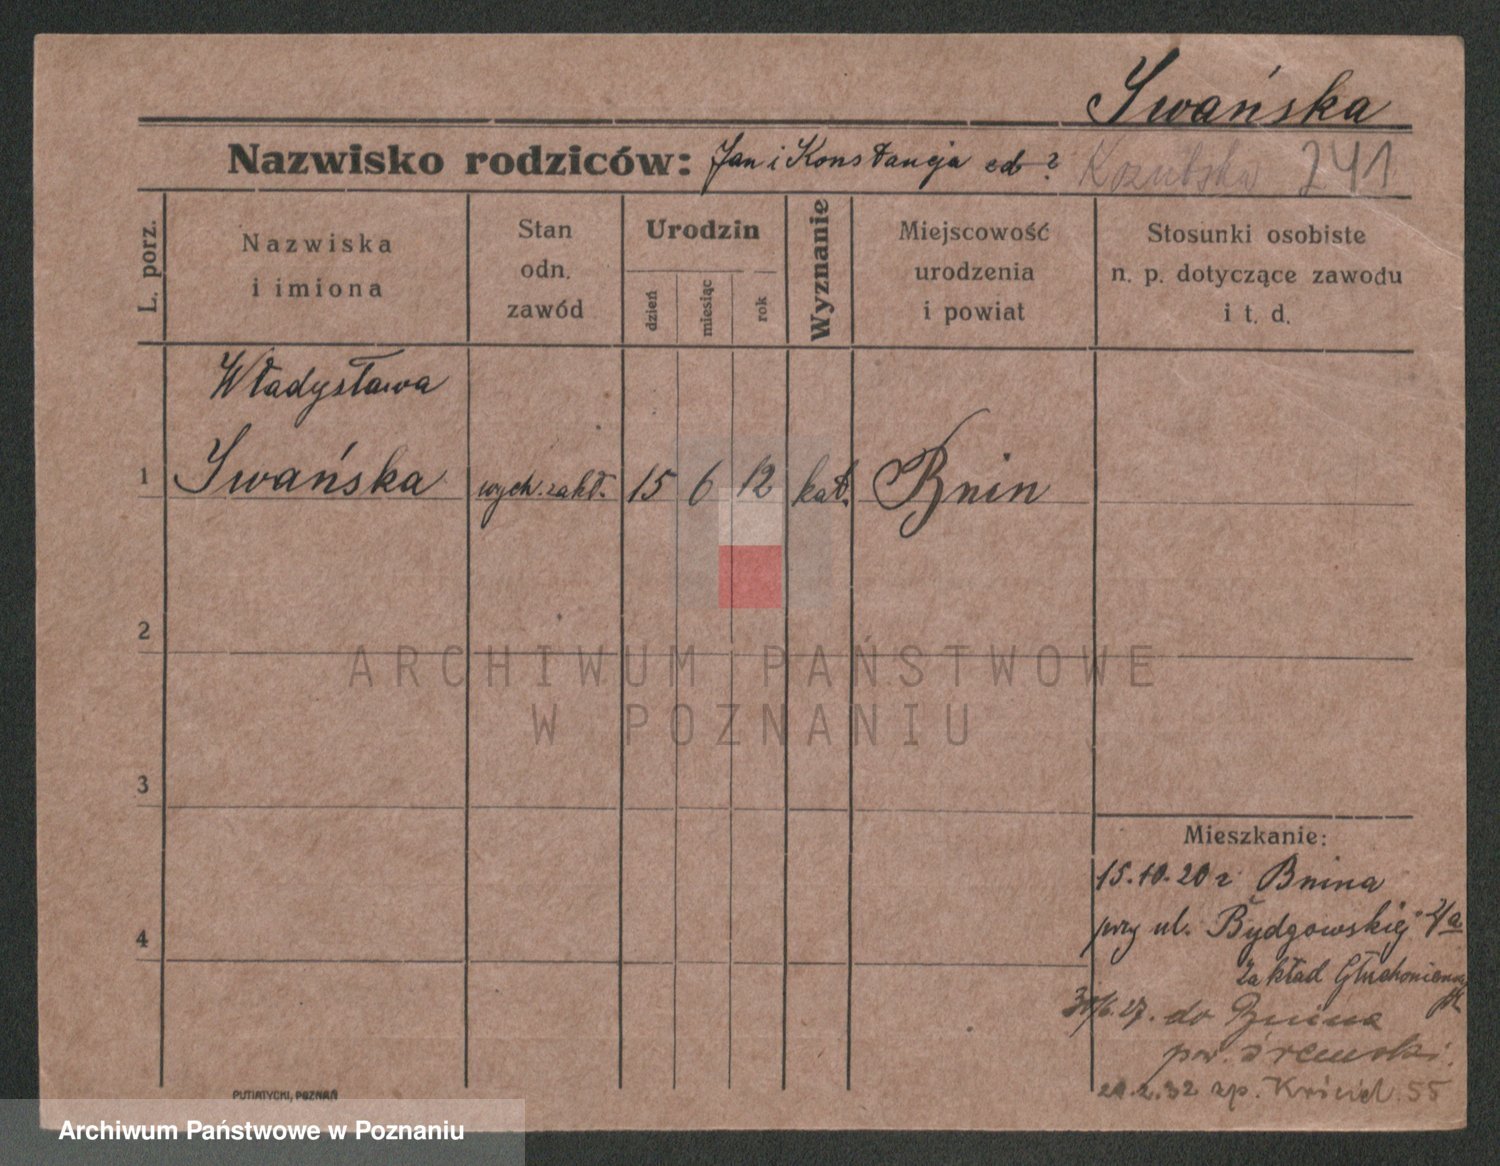 Iwańska
Nazwisko rodziców: Jan i Konstancja zd ? Kozubska 241
L. porz.
Nazwiska
i imiona
Stan
odn.
zawód
Urodzin
dzień
miesiąc
rok
Wyznanie
Miejscowość
urodzenia
i powiat
Stosunki osobiste
n. p. dotyczące zawodu
i t. d.
Władysława
1 Iwańska wych. zakł. 15 6 12 kat. Bnin
2
ARCHIWUM PAŃSTWOWE
W POZNANIU
3
Mieszkanie:
15.10.20 z Bnina
przy ul. Bydgowskiej 4/a
4
Zakład Głuchoniemych
30/6.27. do Bnina
pow. śremski.
.2.32 zp. 55
PUTIATYCKI, POZNAŃ
Archiwum Państwowe w Poznaniu